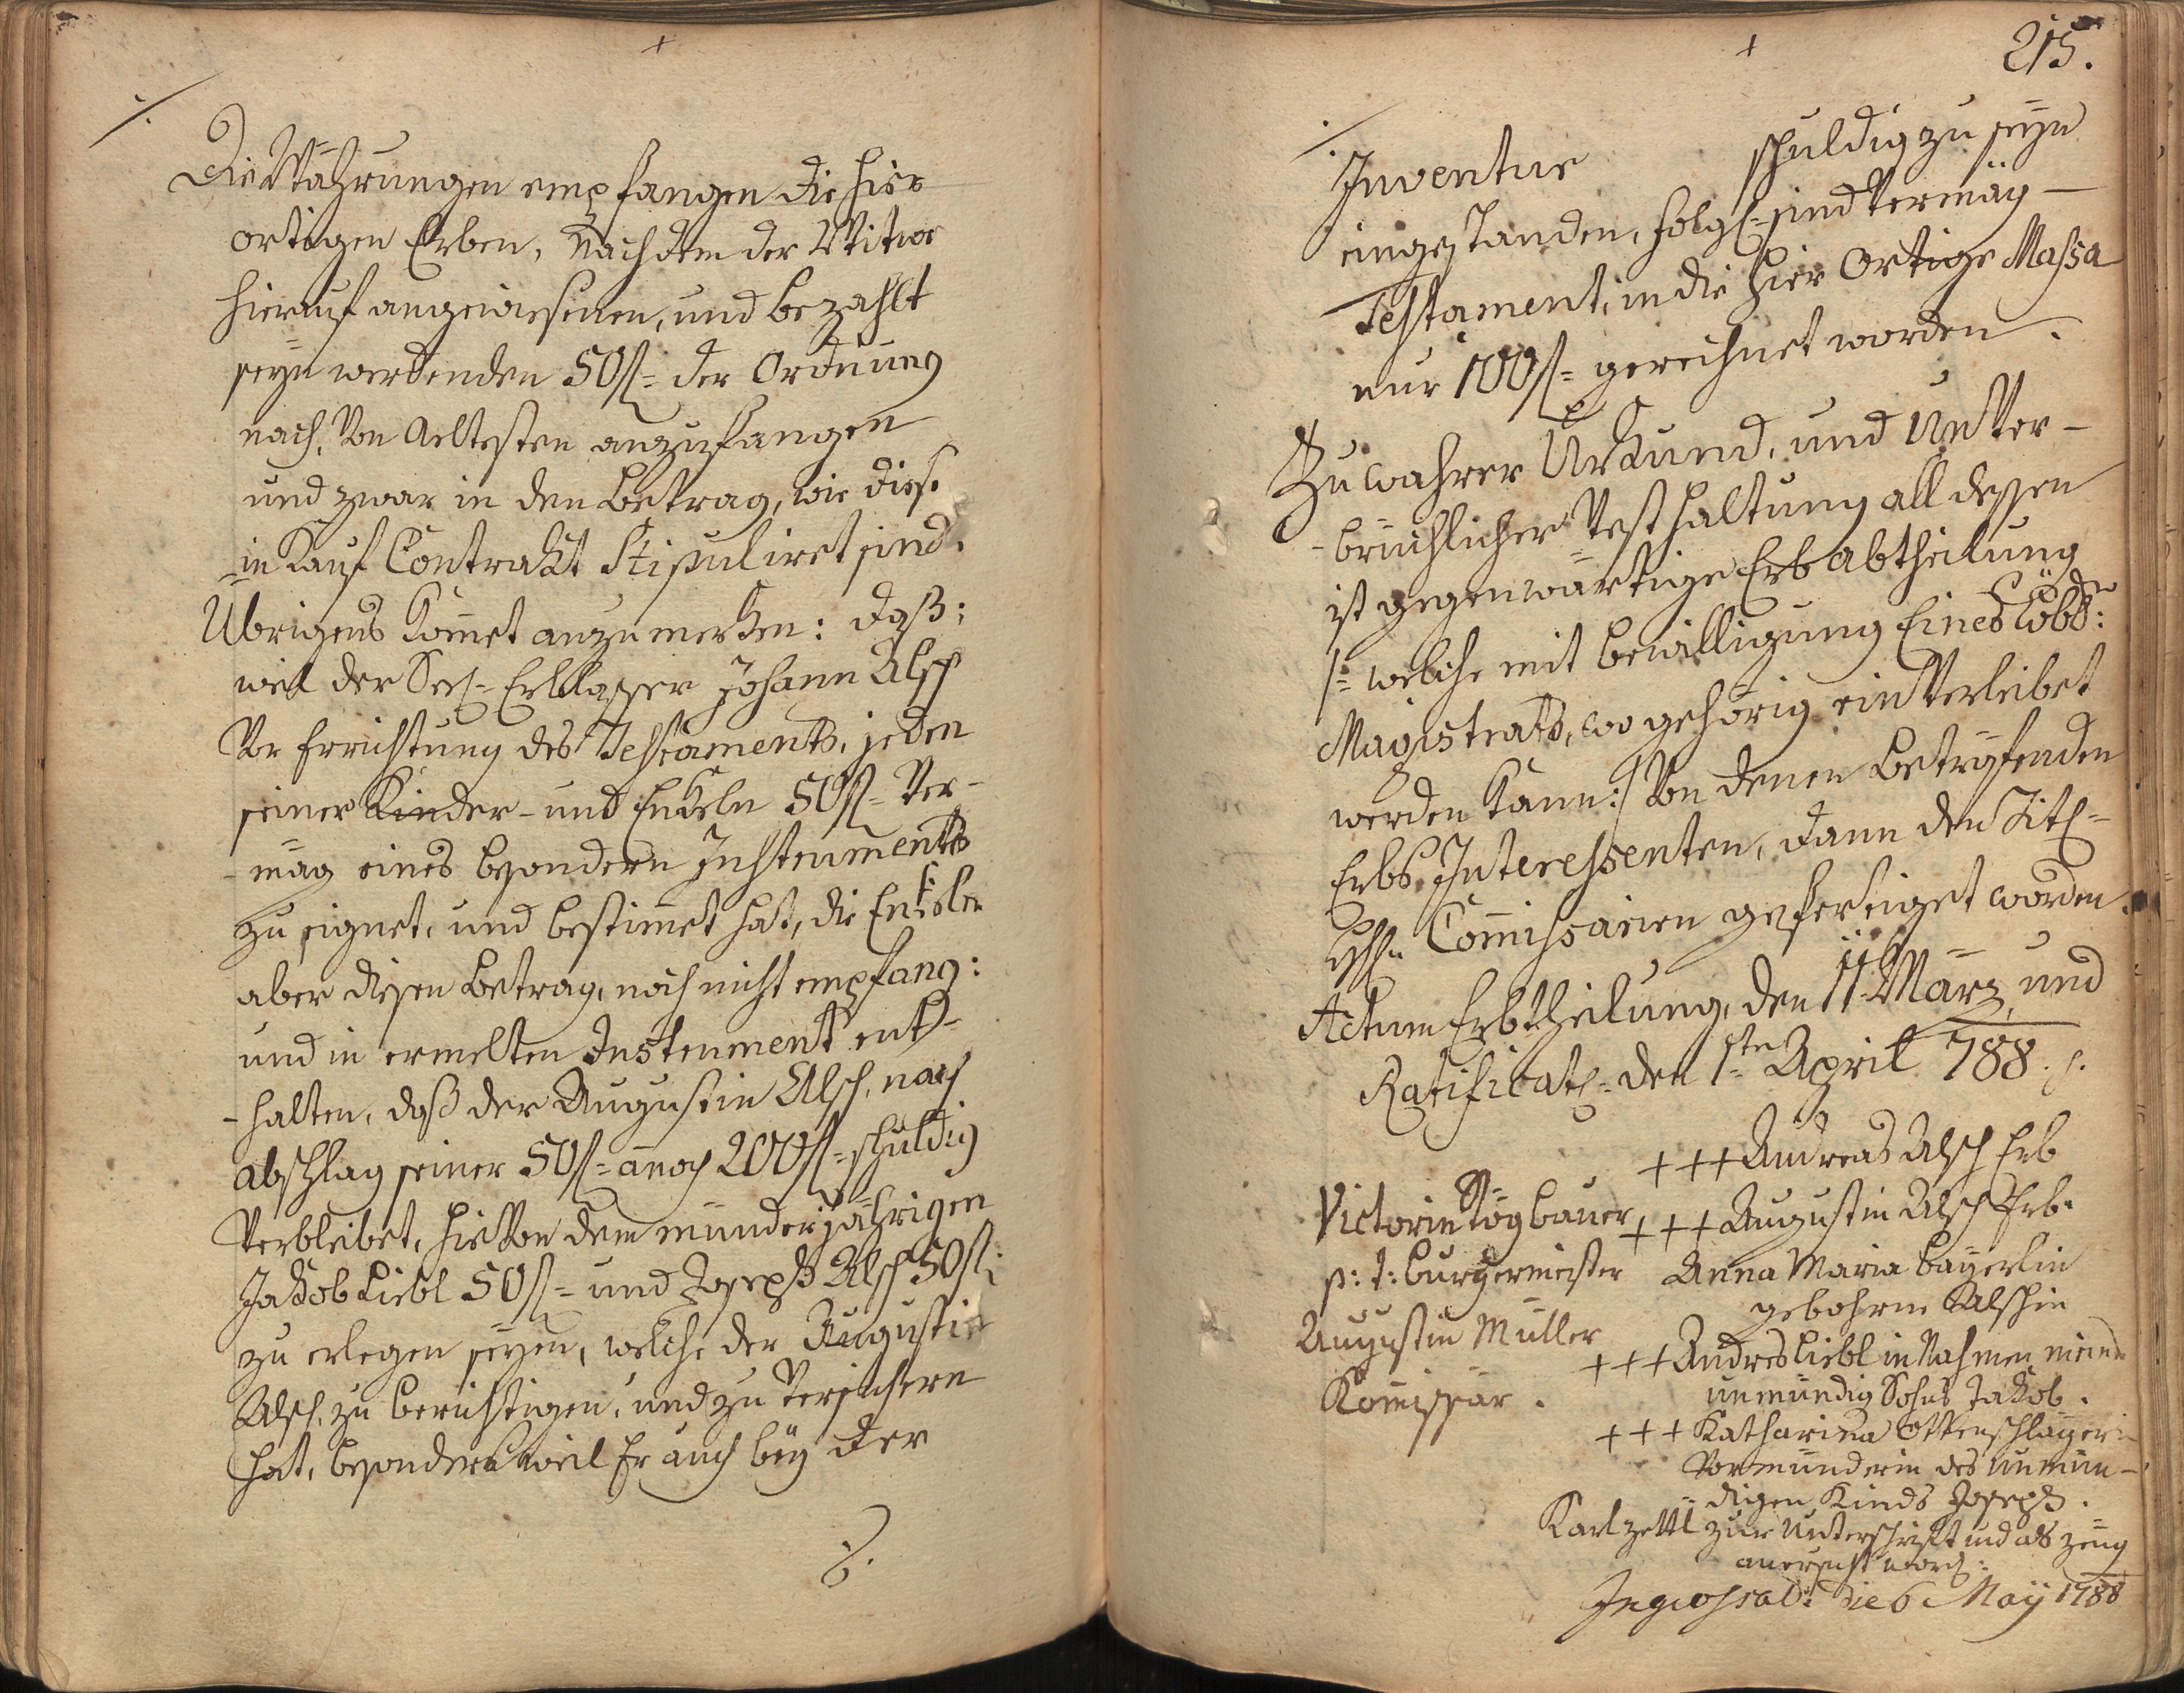 Die Währungen empfangen die hier
ortigen Erben, Nachdem der Witwe
hierauf angewiesenen, und bezahlt
seyn werdenden 50 fl= der Ordnung
nach, Von Aeltesten anzufangen
und zwar in den Betrag, wie diese
in Kauf Contrakt Stipuliret sind.
Übrigens kom̅et anzumerken: daß;
weil der Seel= Erblasser Johann Alsch
Vor Errichtung des Testaments, jeden
seiner Kinder - und Enkeln 50 fl= Ver-
- mög eines besondern Instruments
zu eignet, und bestim̅et hat, die Enkeln
aber diesen Betrag, noch nicht empfang:
und in ermelten Instrument ent-
- halten, daß der Augustin Alsch, nach
abschlag seiner 50 fl= annoch 200 fl= schuldig
Verbleibet, hieVon dem minderjährigen
Jakob Liebl 50 fl= und Joseph Alsch 50 fl:
zu erlegen seyen, welche der Augustin
Alsch, zu berichtigen, und zu Versichern
hat, besonders weil Er auch bey der
215.
Inventur schuldig zu seyn
eingestanden, folgl= sind Vermög -
Testament, in die hier Ortige Massa
nur 100 fl= gerechnet worden.
Zu wahrer Urkund, und UnVer-
- brüchlicher Vesthaltung all dessen
ist gegenwärtige Erbabtheilung
/: welche mit Bewilligung Eines Löbl:
Magistrats, wo gehörig einVerleibet
werden kann :/ Von denen Betrefenden
Erbs Interessenten, dann den Titl=
Com̅issarien gefertiget worden.
Actum Erbtheilung, den 11 März, und
Ratificat= den 1ten April 788.
+++ Andreas Alsch Erb
Victorin Tögbauer
+++ Augustin Alsch Erb.
p: t: Burgermeister
Anna Maria Bayerlin
gebohrne Alschin
Augustin Müller
Kom̅issär.
+++ Andres Liebl in Nahmen meines
unmündig Sohns Jakob.
+++ Katharina Ottenschlagerin
Vormünderin des unmün-
digen Kinds Joseph.
Karl Zettl zur Unterschrift und als Zeug
anersucht word:
Ingrossat: die 6 Maÿ 1788